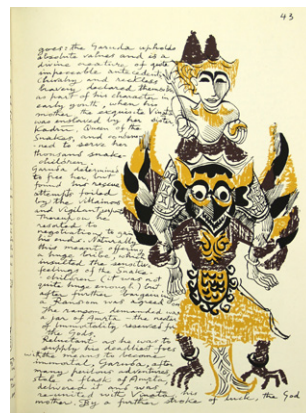 43
gives: the Garuda upholds
absolute values and is a
divine creature of quite
impeccable antecedents.
Chivalry and reckless
bravery declared themselves
as part of his character in
early youth, when his
mother the exquisite Vinata
was enslaved by her sister
Kadru, Queen of the
Snakes, and
red to serve her
thousand snake-
children.
Garuda determined
to free her but
found his rescue
attempts foiled
by the villainous
and vigilant
Thereupon he
resorted to
negotiating to gain
his ends. Naturally
this meant offering
a huge bribe, which
insulted the sensitive
feelings of the Snake-
children (it was not
quite huge enough) but
after further bargaining
a Ransom was agreed.
The ransom demanded was
a jar of Amrta - the nectar
of immortality reserved for
the Gods.
Reluctant as he was to
supply his deadliest foes
with the means to become
immortal, Garuda, after
many perilous adventures,
stole a flask of Amrta,
delivered it and was
reunited with Vinata, his
mother. By a further stroke of luck, the God